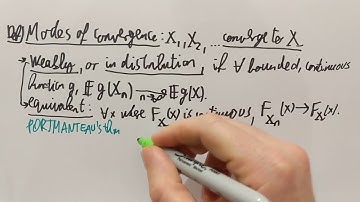 Def Modes of convergence: X₁, X₂, ... converge to X
→ Weakly, or in distribution, if ∀ bounded, continuous
function g, 𝔼 g(Xₙ) →ₙ→∞ 𝔼 g(X).
→ equivalent: ∀x where F_X(x) is continuous, F_Xₙ(x) → F_X(x).
PORTMANTEAU's thm